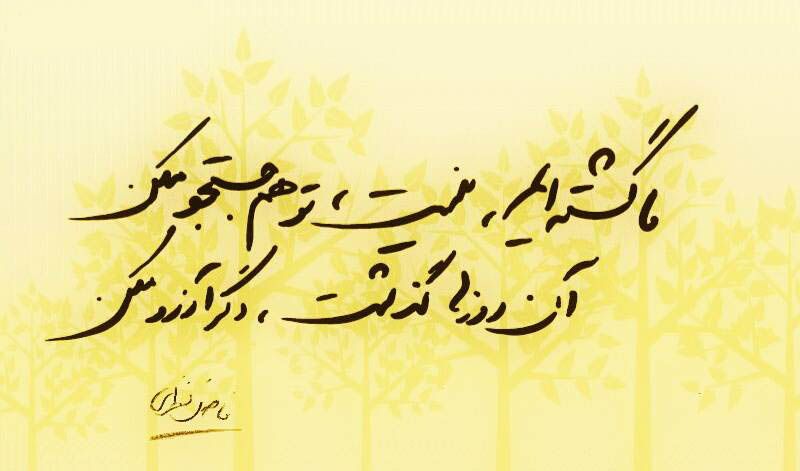 ما گشته‌ایم، نیست، تو هم جستجو مکن
آن روزها گذشت، دگر آرزو مکن
فاضل نظری